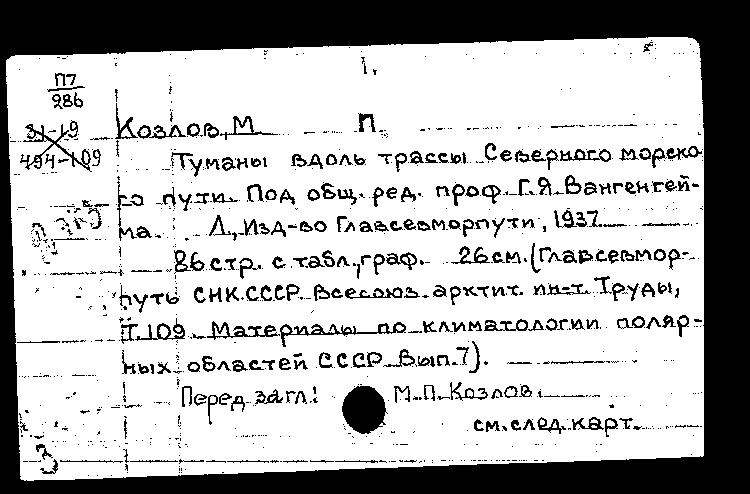 1.
П7
286
31-19
494-109
Козлов, М. П.
Туманы вдоль трассы Северного морско-
го пути. Под общ. ред. проф. Г.Я. Вангенгей-
ма. Л., Изд-во Главсевморпути, 1937.
86 стр. с табл., граф. 26 см. (Главсевмор-
путь СНК СССР. Всесоюз. арктич. ин-т. Труды,
Т. 109. Материалы по климатологии поляр-
ных областей СССР. Вып. 7).
Перед загл.: М. П. Козлов.
см. след. карт.
3